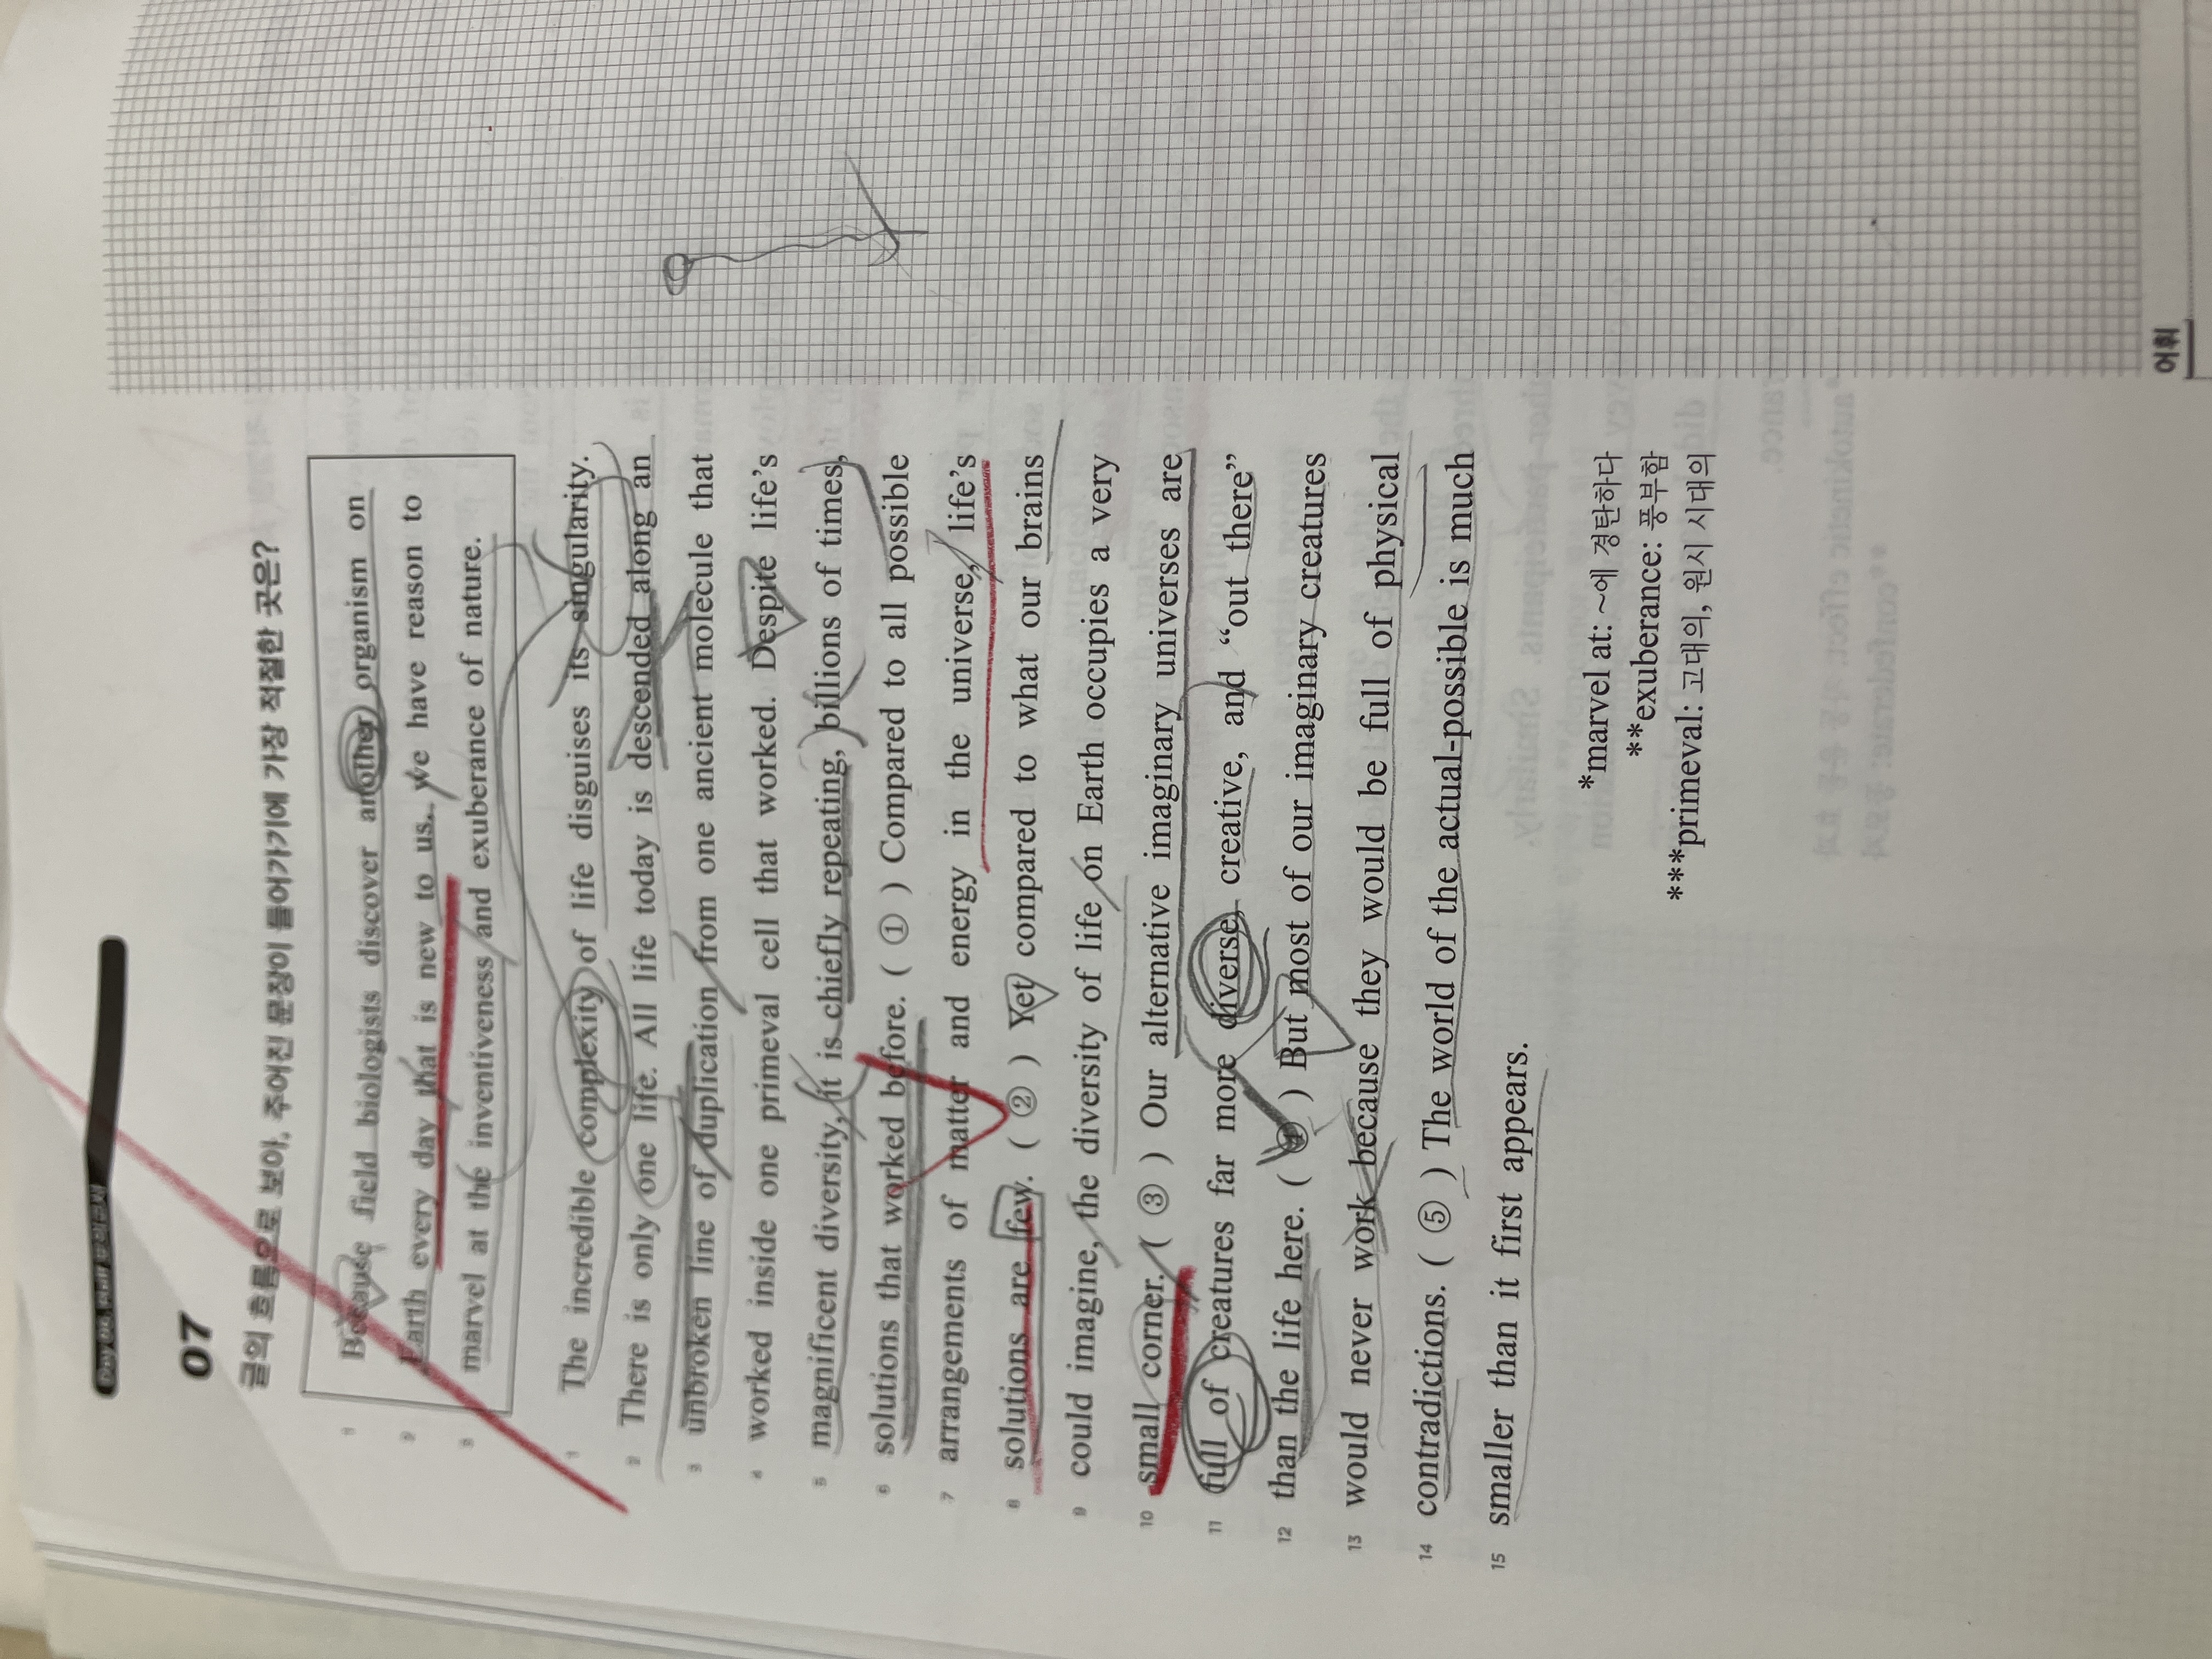 07
글의 흐름으로 보아, 주어진 문장이 들어가기에 가장 적절한 곳은?
1 Because field biologists discover another organism on
2 Earth every day that is new to us, we have reason to
3 marvel at the inventiveness and exuberance of nature.
1 The incredible complexity of life disguises its singularity.
2 There is only one life. All life today is descended along an
3 unbroken line of duplication from one ancient molecule that
4 worked inside one primeval cell that worked. Despite life's
5 magnificent diversity, it is chiefly repeating, billions of times,
6 solutions that worked before. ( ① ) Compared to all possible
7 arrangements of matter and energy in the universe, life's
8 solutions are few. ( ② ) Yet compared to what our brains
9 could imagine, the diversity of life on Earth occupies a very
10 small corner. ( ③ ) Our alternative imaginary universes are
11 full of creatures far more diverse, creative, and “out there”
12 than the life here. ( ④ ) But most of our imaginary creatures
13 would never work because they would be full of physical
14 contradictions. ( ⑤ ) The world of the actual-possible is much
15 smaller than it first appears.
*marvel at: ~에 경탄하다
**exuberance: 풍부함
***primeval: 고대의, 원시 시대의
어휘